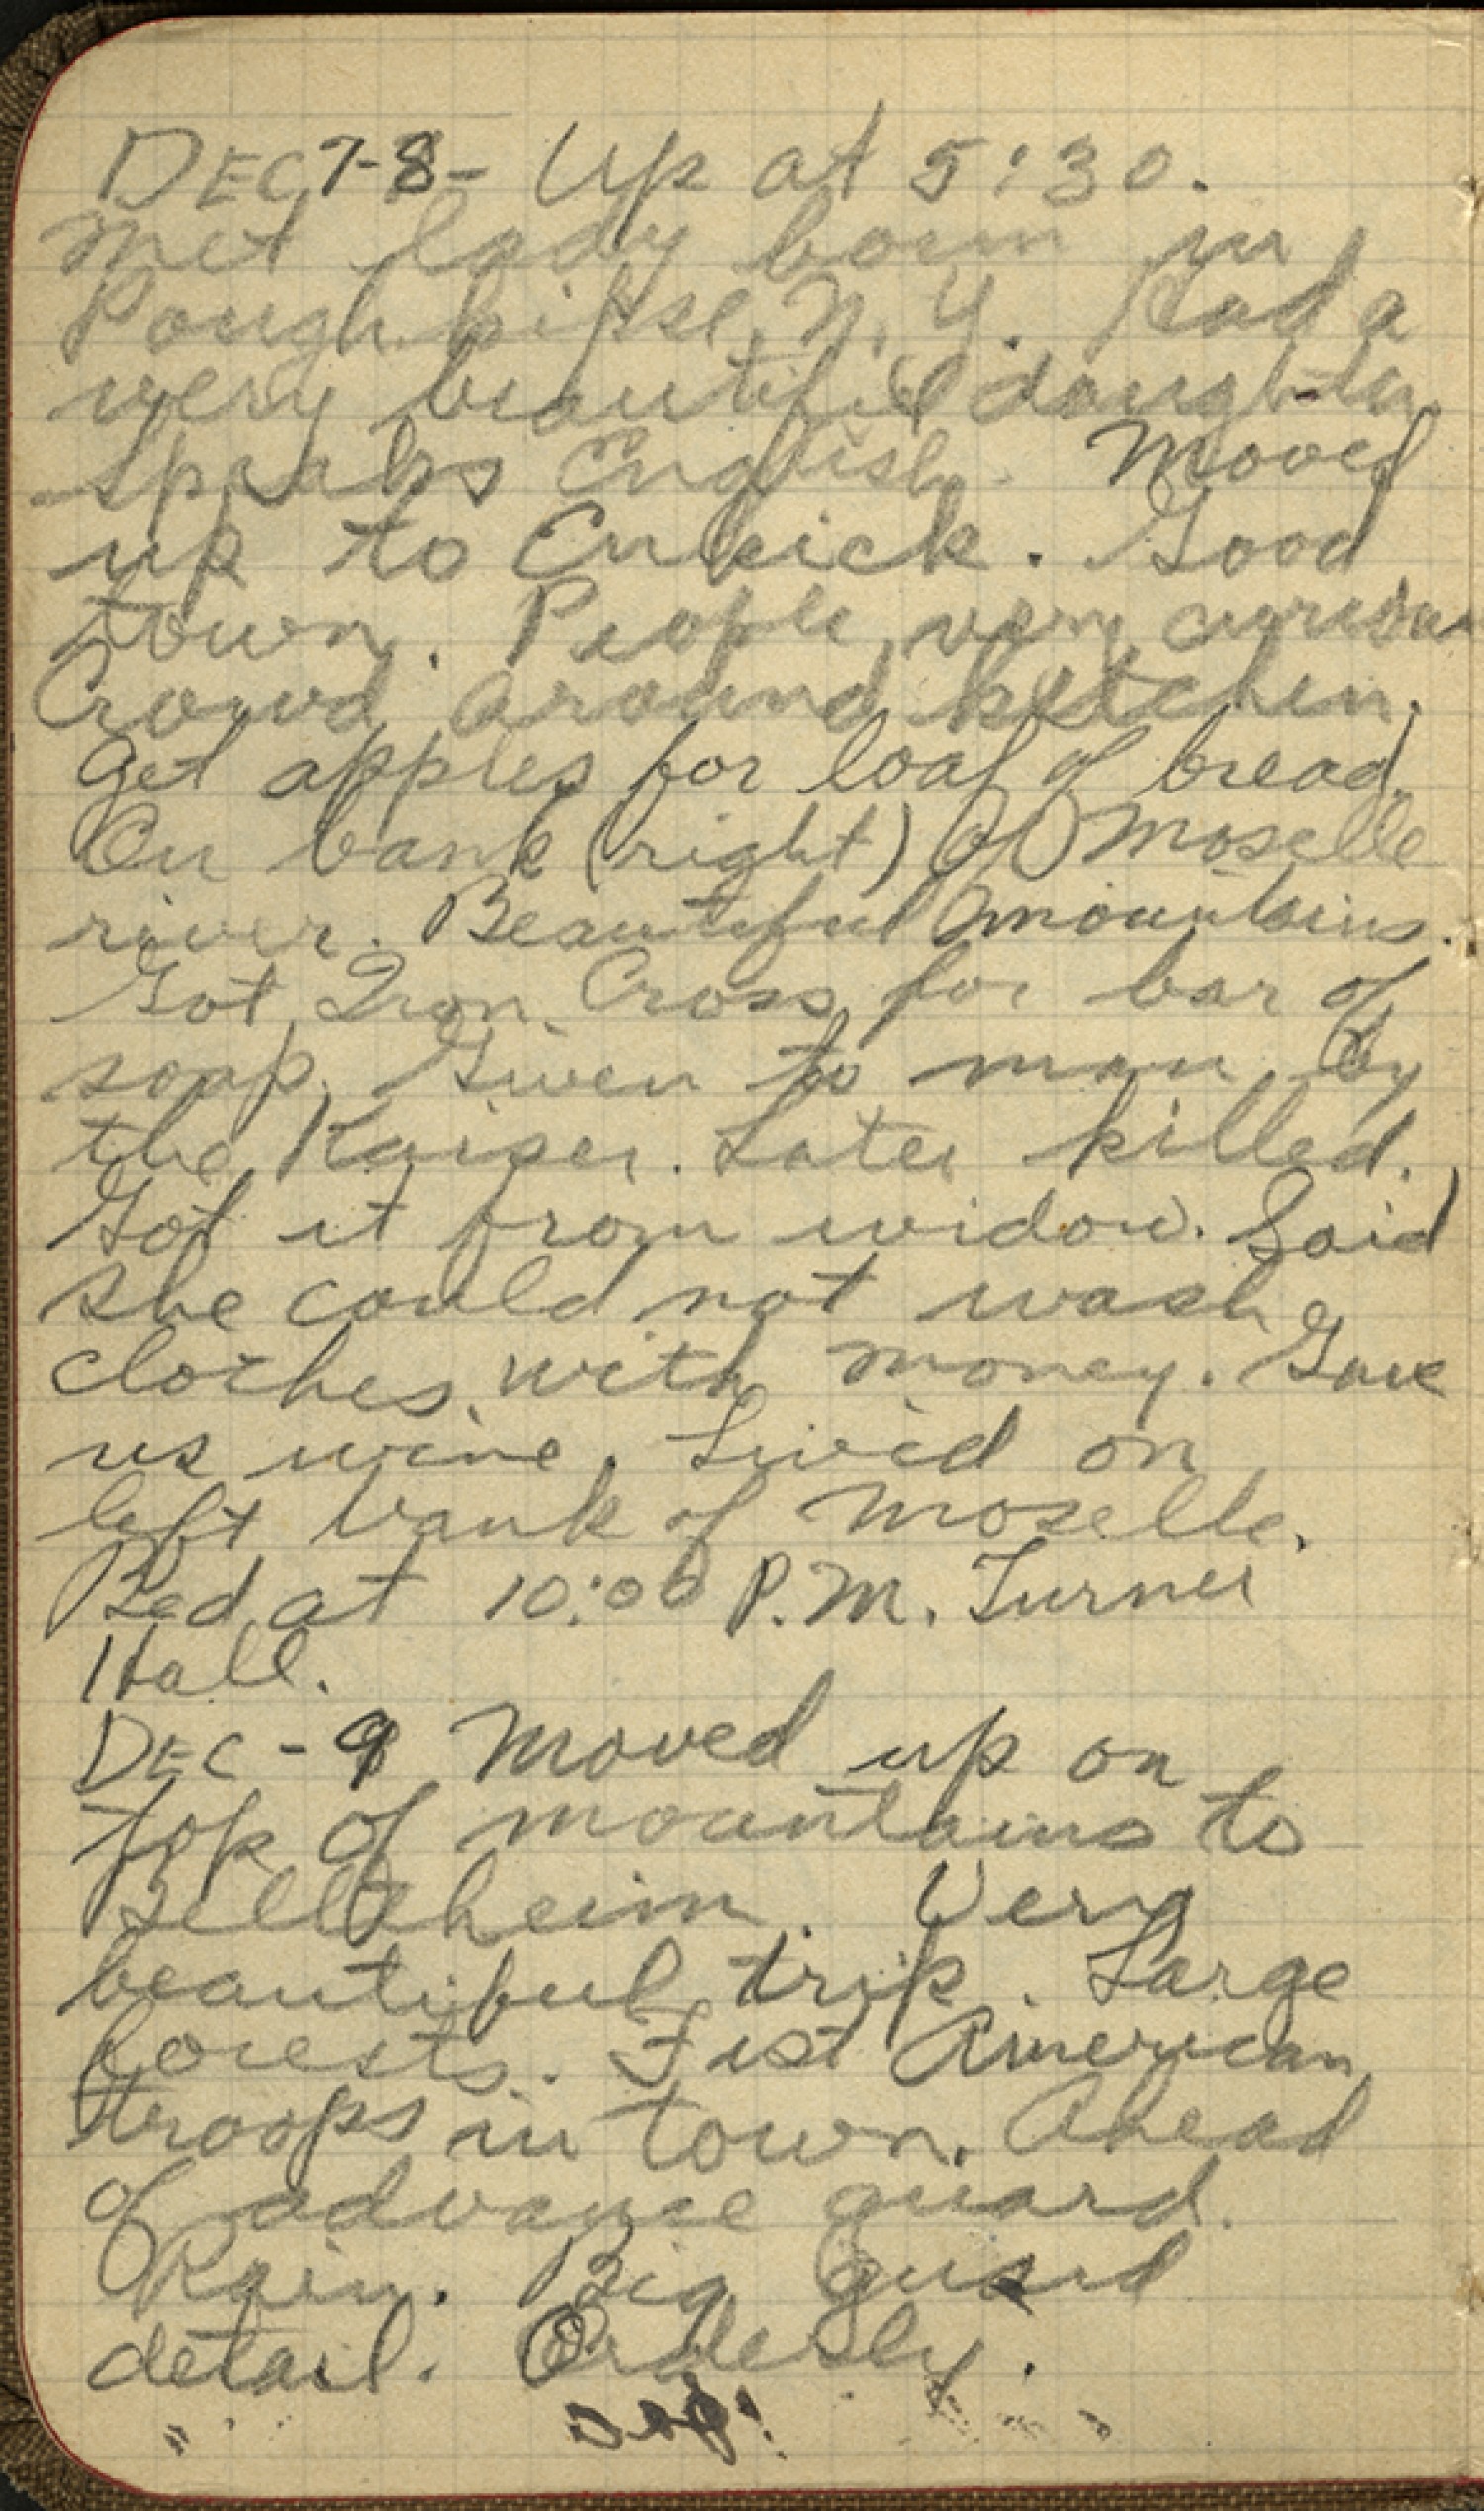 DEC 7-8- Up at 5:30.
Met lady born in
Poughkipse, N.Y. Had a
very beautiful daughter
Speaks English. Moved
up to Enkick. Good
town. People very curious
Crowd around kitchen.
Get apples for loaf of bread.
On bank (right) of Moselle
river. Beautiful mountains.
Got Iron Cross for bar of
soap. Given to man by
the Kaiser. Later killed.
Got it from widow. Said
she could not wash
clothes with money. Gave
us wine. Lived on
left bank of Moselle.
Bed at 10:00 P.M. Turner
Hall.
DEC - 9 Moved up on
top of mountains to
Belltheim. Very
beautiful trip. Large
forests. Fist American
troops in town. Ahead
of advance guard.
Rain. Big guard
detail. Orderly.